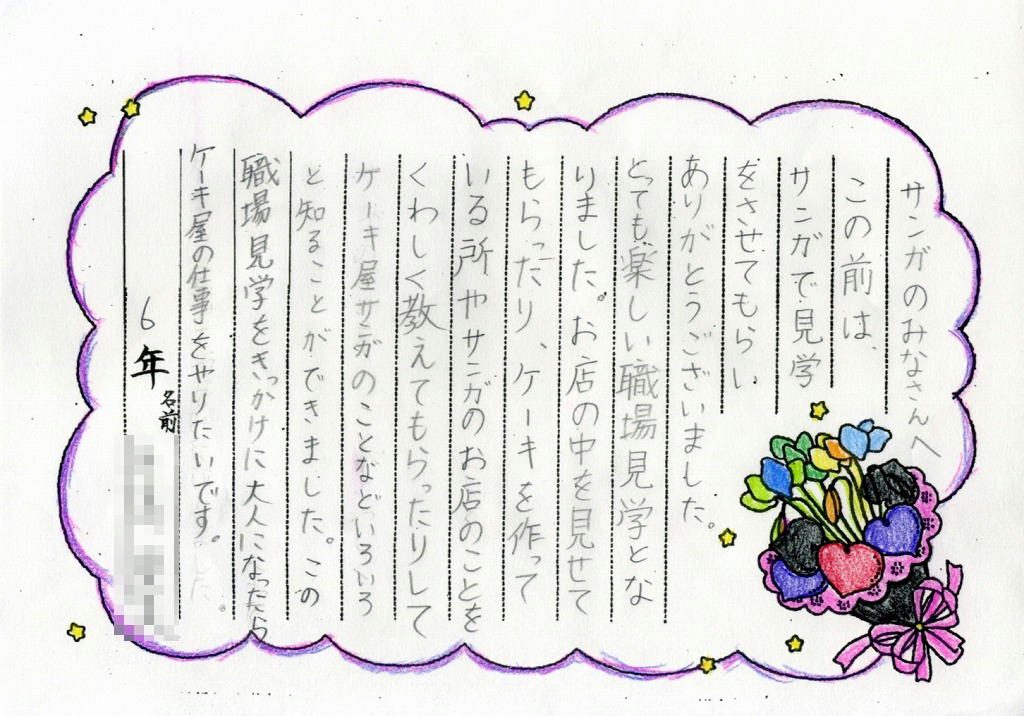 サンガのみなさんへ
この前は、
サンガで見学
をさせてもらい
ありがとうございました。
とっても楽しい職場見学とな
りました。お店の中を見せて
もらったり、ケーキを作って
いる所やサンガのお店のことを
くわしく教えてもらったりして
ケーキ屋サンガのことなどいろいろ
と知ることができました。この
職場見学をきっかけに大人になったら
ケーキ屋の仕事をやりたいです。
6年 名前